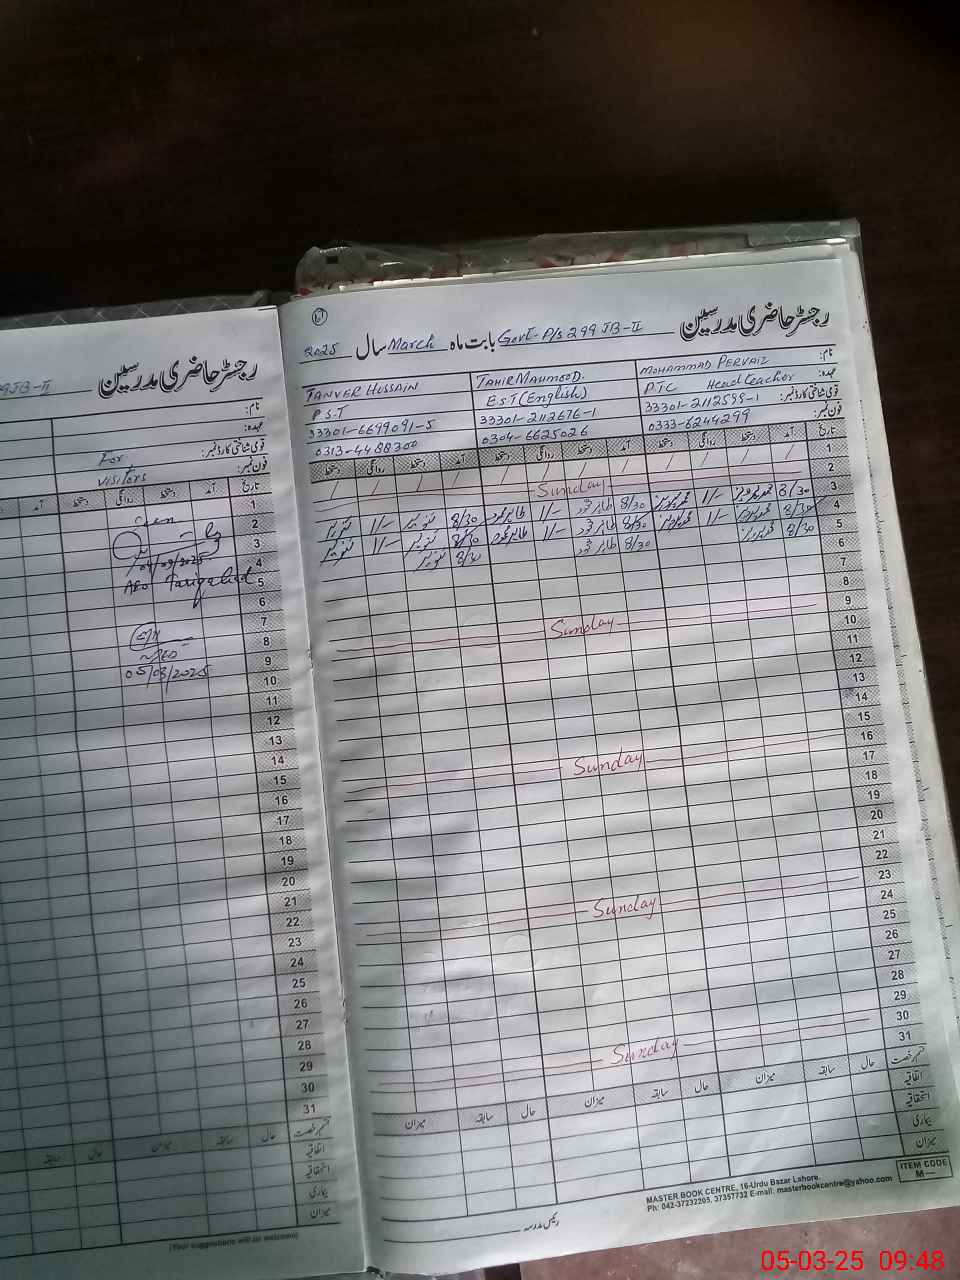 رجسٹر حاضری مدرسین
99 JB-II
نام:
عہدہ:
For
قومی شناختی کارڈ نمبر:
Visitors
فون نمبر:
تاریخ
آمد
دستخط
روانگی
دستخط
آمد
دستخط
1
2
Seen
3
04/03/2025
4
AEO
5
6
7
8
9
05/03/2025
10
11
12
13
14
15
16
17
18
19
20
21
22
23
24
25
26
27
28
29
30
31
قسم رخصت
حال
سابقہ
میزان
حال
سابقہ
اتفاقیہ
استحقاقیہ
بیماری
میزان
(Your suggestions will be welcomed)
رجسٹر حاضری مدرسین
Govt. P/S 299 JB-II
بابت ماہ
March
سال
2025
نام:
MOHAMMAD PERVAIZ
TAHIR MAHMOOD.
TANVER HUSSAIN
عہدہ:
P.T.C Headteacher
E.S.T (English)
P.S.T
قومی شناختی کارڈ نمبر:
33301-2112595-1
33301-2112676-1
33301-6699091-5
فون نمبر:
0333-6244299
0304-6625026
0313-4488300
تاریخ
آمد
دستخط
روانگی
دستخط
آمد
دستخط
روانگی
دستخط
آمد
دستخط
روانگی
دستخط
1 / / / / / / / / / / / /
2 Sunday
3 8/30 1/- 8/30 طاہر محمود 1/- طاہر محمود 8/30 تنویر 1/- تنویر
4 8/30 1/- 8/30 طاہر محمود 1/- طاہر محمود 8/30 تنویر 1/- تنویر
5 8/30 8/30 طاہر محمود 8/30 تنویر
6
7
8
9 Sunday
10
11
12
13
14
16 Sunday
17
18
19
20
21
22
23 Sunday
24
25
26
27
28
29
30 Sunday
31
قسم رخصت
حال
سابقہ
میزان
حال
سابقہ
میزان
حال
سابقہ
میزان
اتفاقیہ
استحقاقیہ
بیماری
میزان
رئیس مدرسہ
MASTER BOOK CENTRE, 16-Urdu Bazar Lahore.
Ph: 042-37232205, 37357732 E-mail: masterbookcentre@yahoo.com
ITEM CODE
M—
05-03-25 09:48